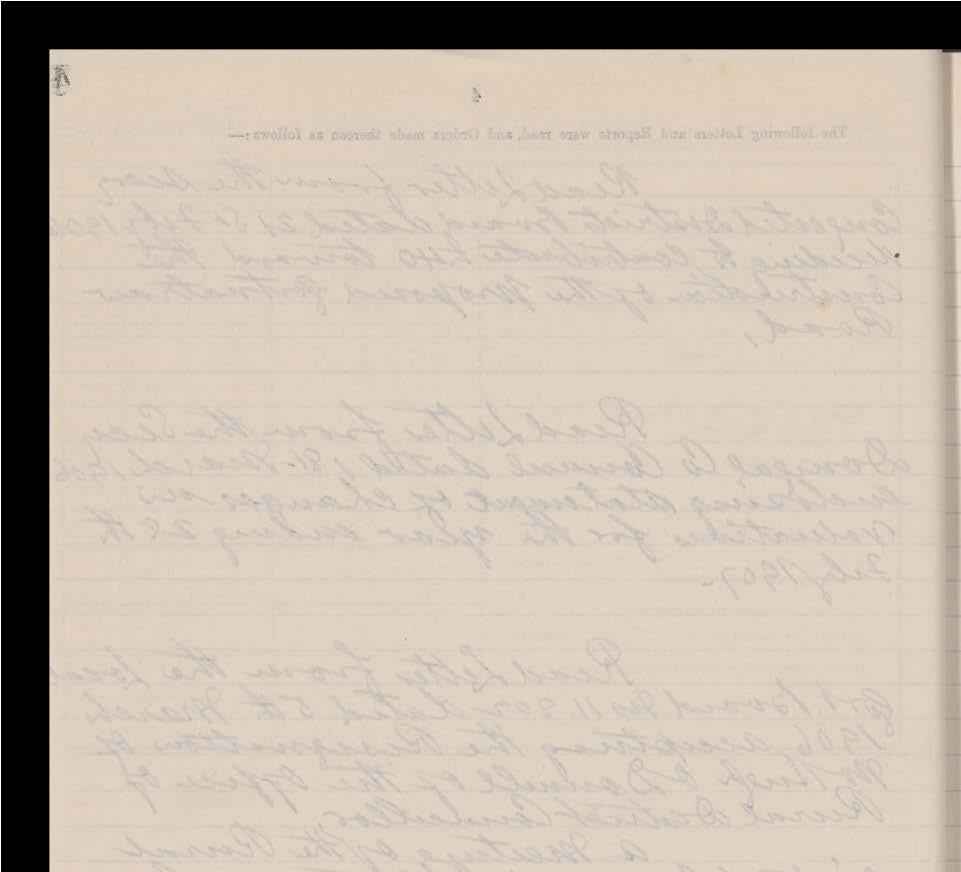 4
The following Letters and Reports were read, and Orders made thereon as follows:—
Read Letter from the Secy
Congested Districts Board dated 21st Feby 1906
deciding to contribute £40 toward the
Construction of the proposed
Road,
Read Letter from the Secy
Donegal Co Council dated 1st March 1906
enclosing statement of changes in
valuations for the year ending 28th
Feby 1907
Read Letter from the Local
Govt. Board No 11.302 dated 5th March
1906 accepting the Resignation of
Mr Hugh O'Donnell of the office of
Rural District Councillor
a meeting of the Rural